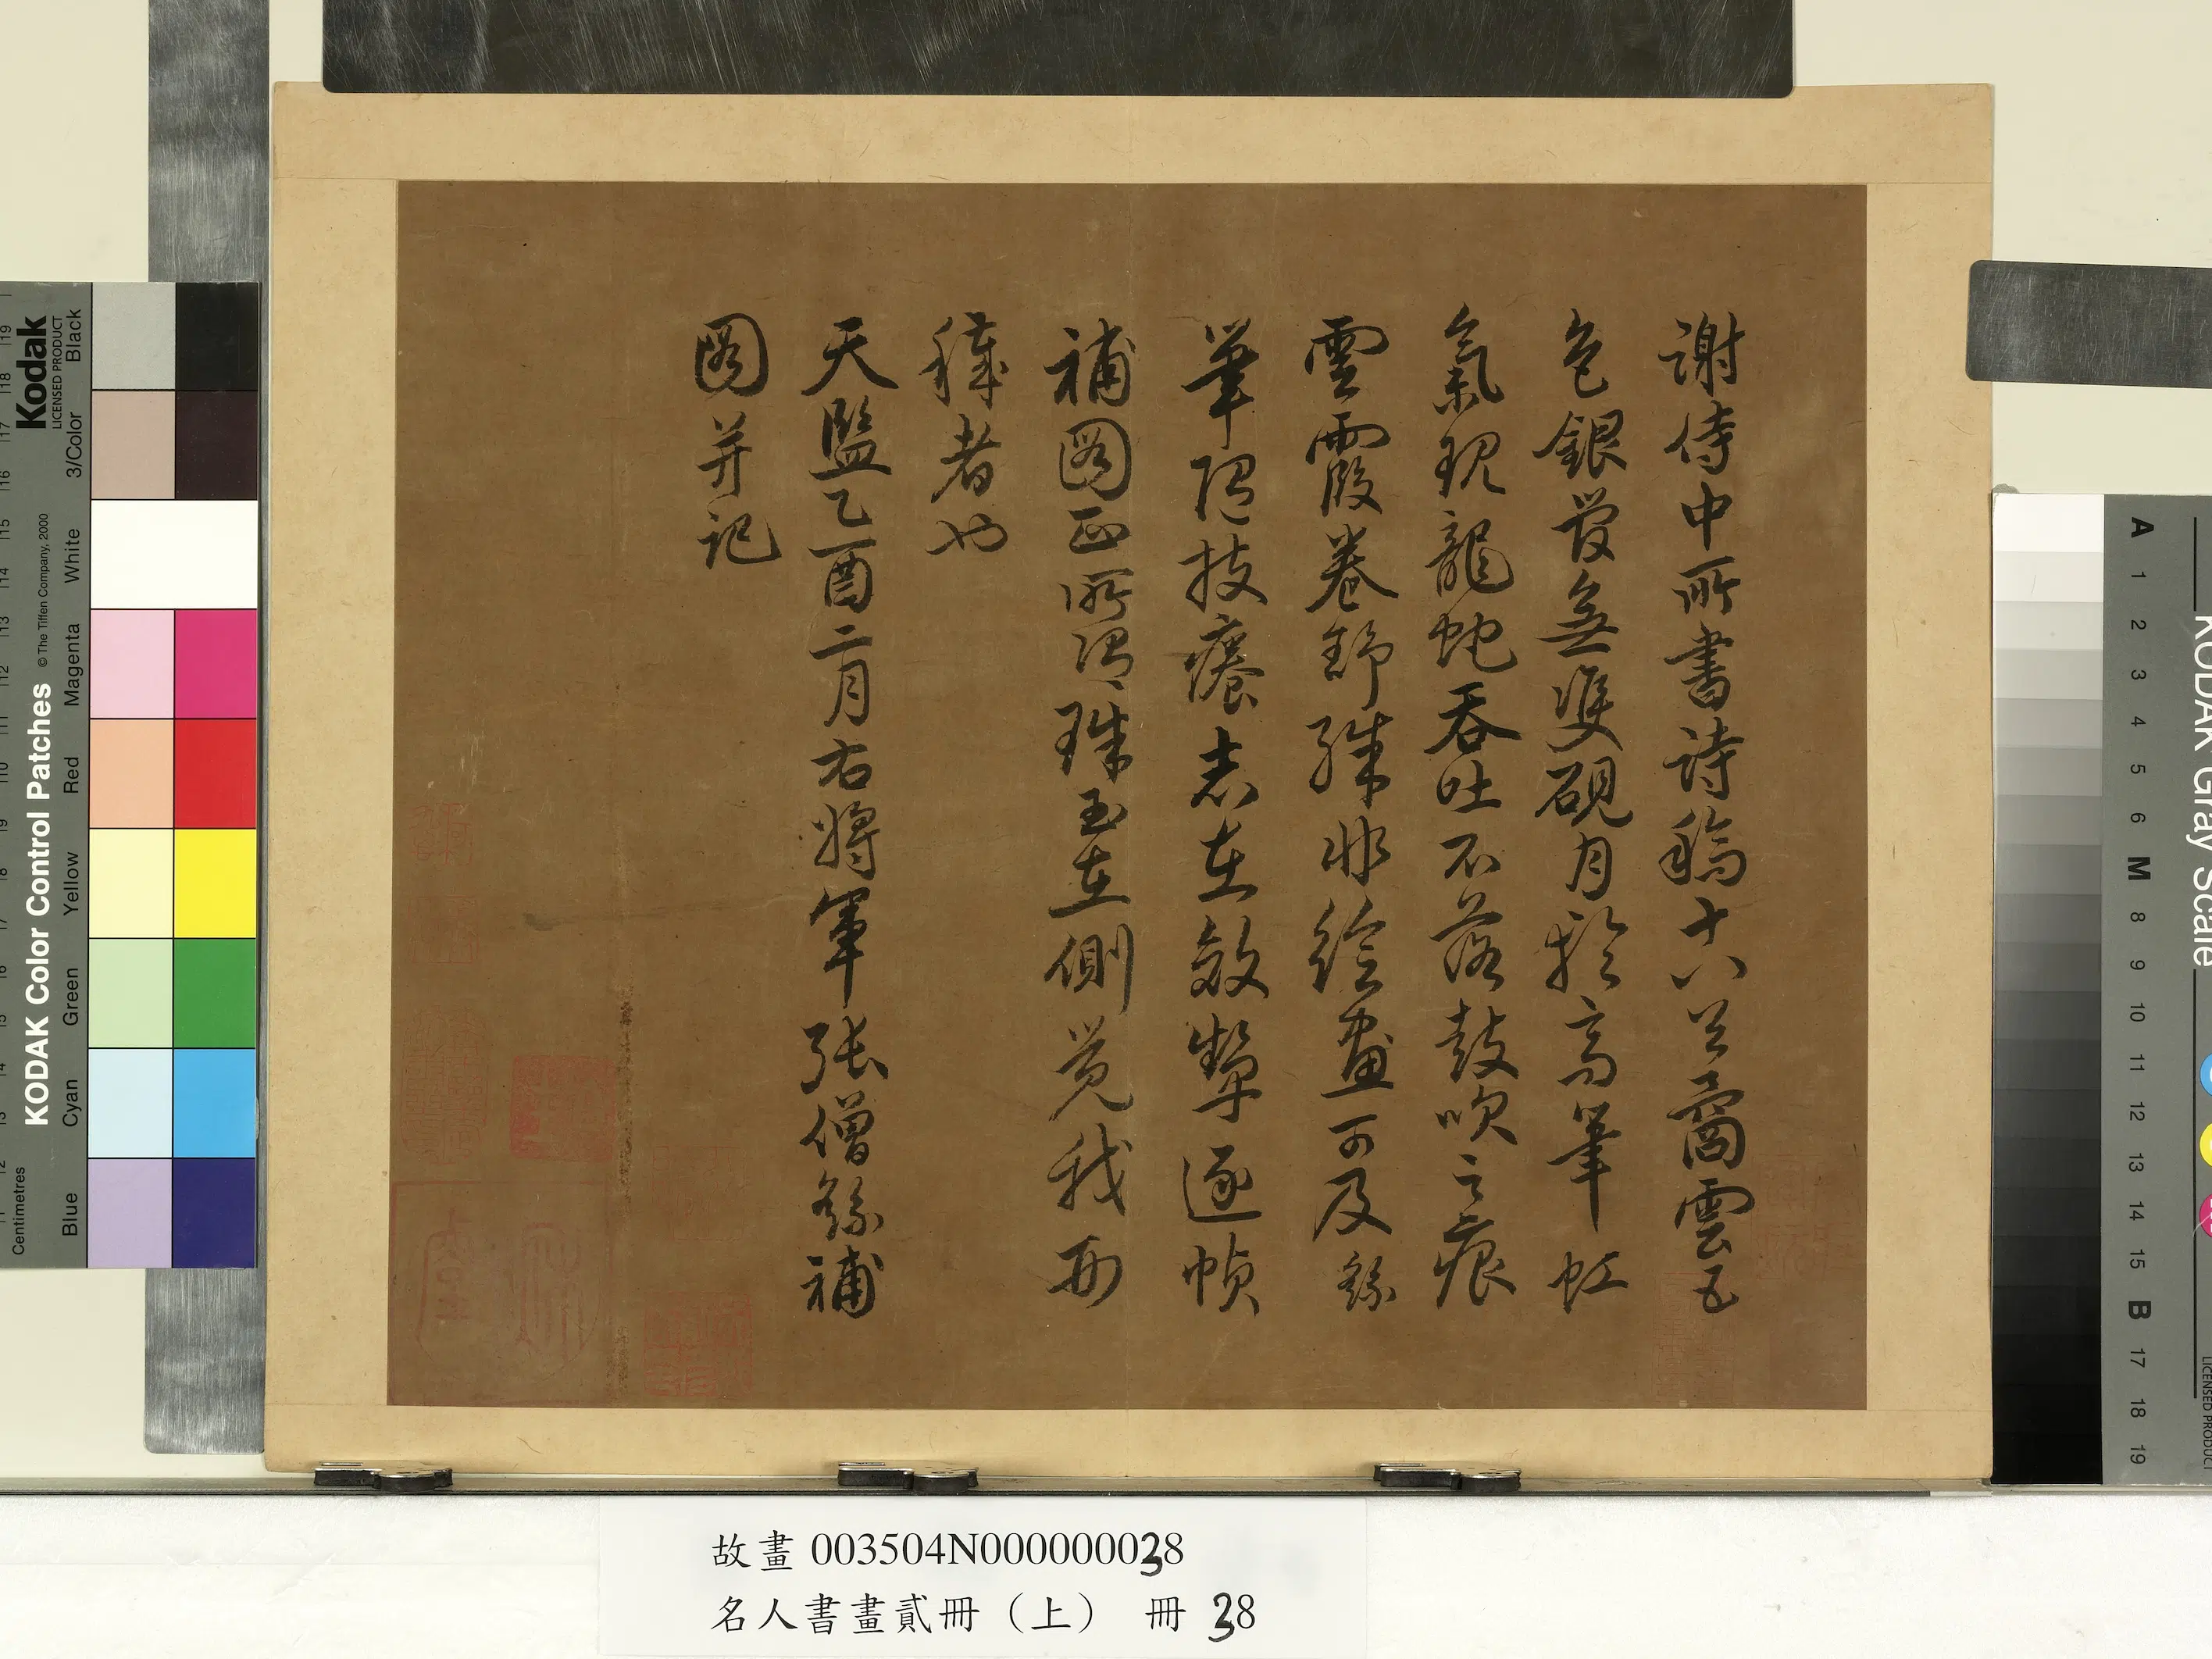 謝侍中所書詩稿十八矞雲五
色銀無雙硯月高筆虹
氣現龍蛇吞吐不落鼓吹之痕
雲霞卷舒殊非繪畫可及繇
筆技癢志在效顰逐幀
補圖正所謂珠玉在側覺我形
穢者也
天監乙酉二月右將軍張僧繇補
圖并記
故畫 003504N000000038
名人書畫貳冊（上） 冊 38
Kodak
LICENSED PRODUCT
KODAK Color Control Patches
© The Tiffen Company, 2000
Centimetres
Blue Cyan Green Yellow Red Magenta White 3/Color Black
KODAK Gray Scale
A 1 2 3 4 5 6 M 8 9 10 11 12 13 14 15 B 17 18 19